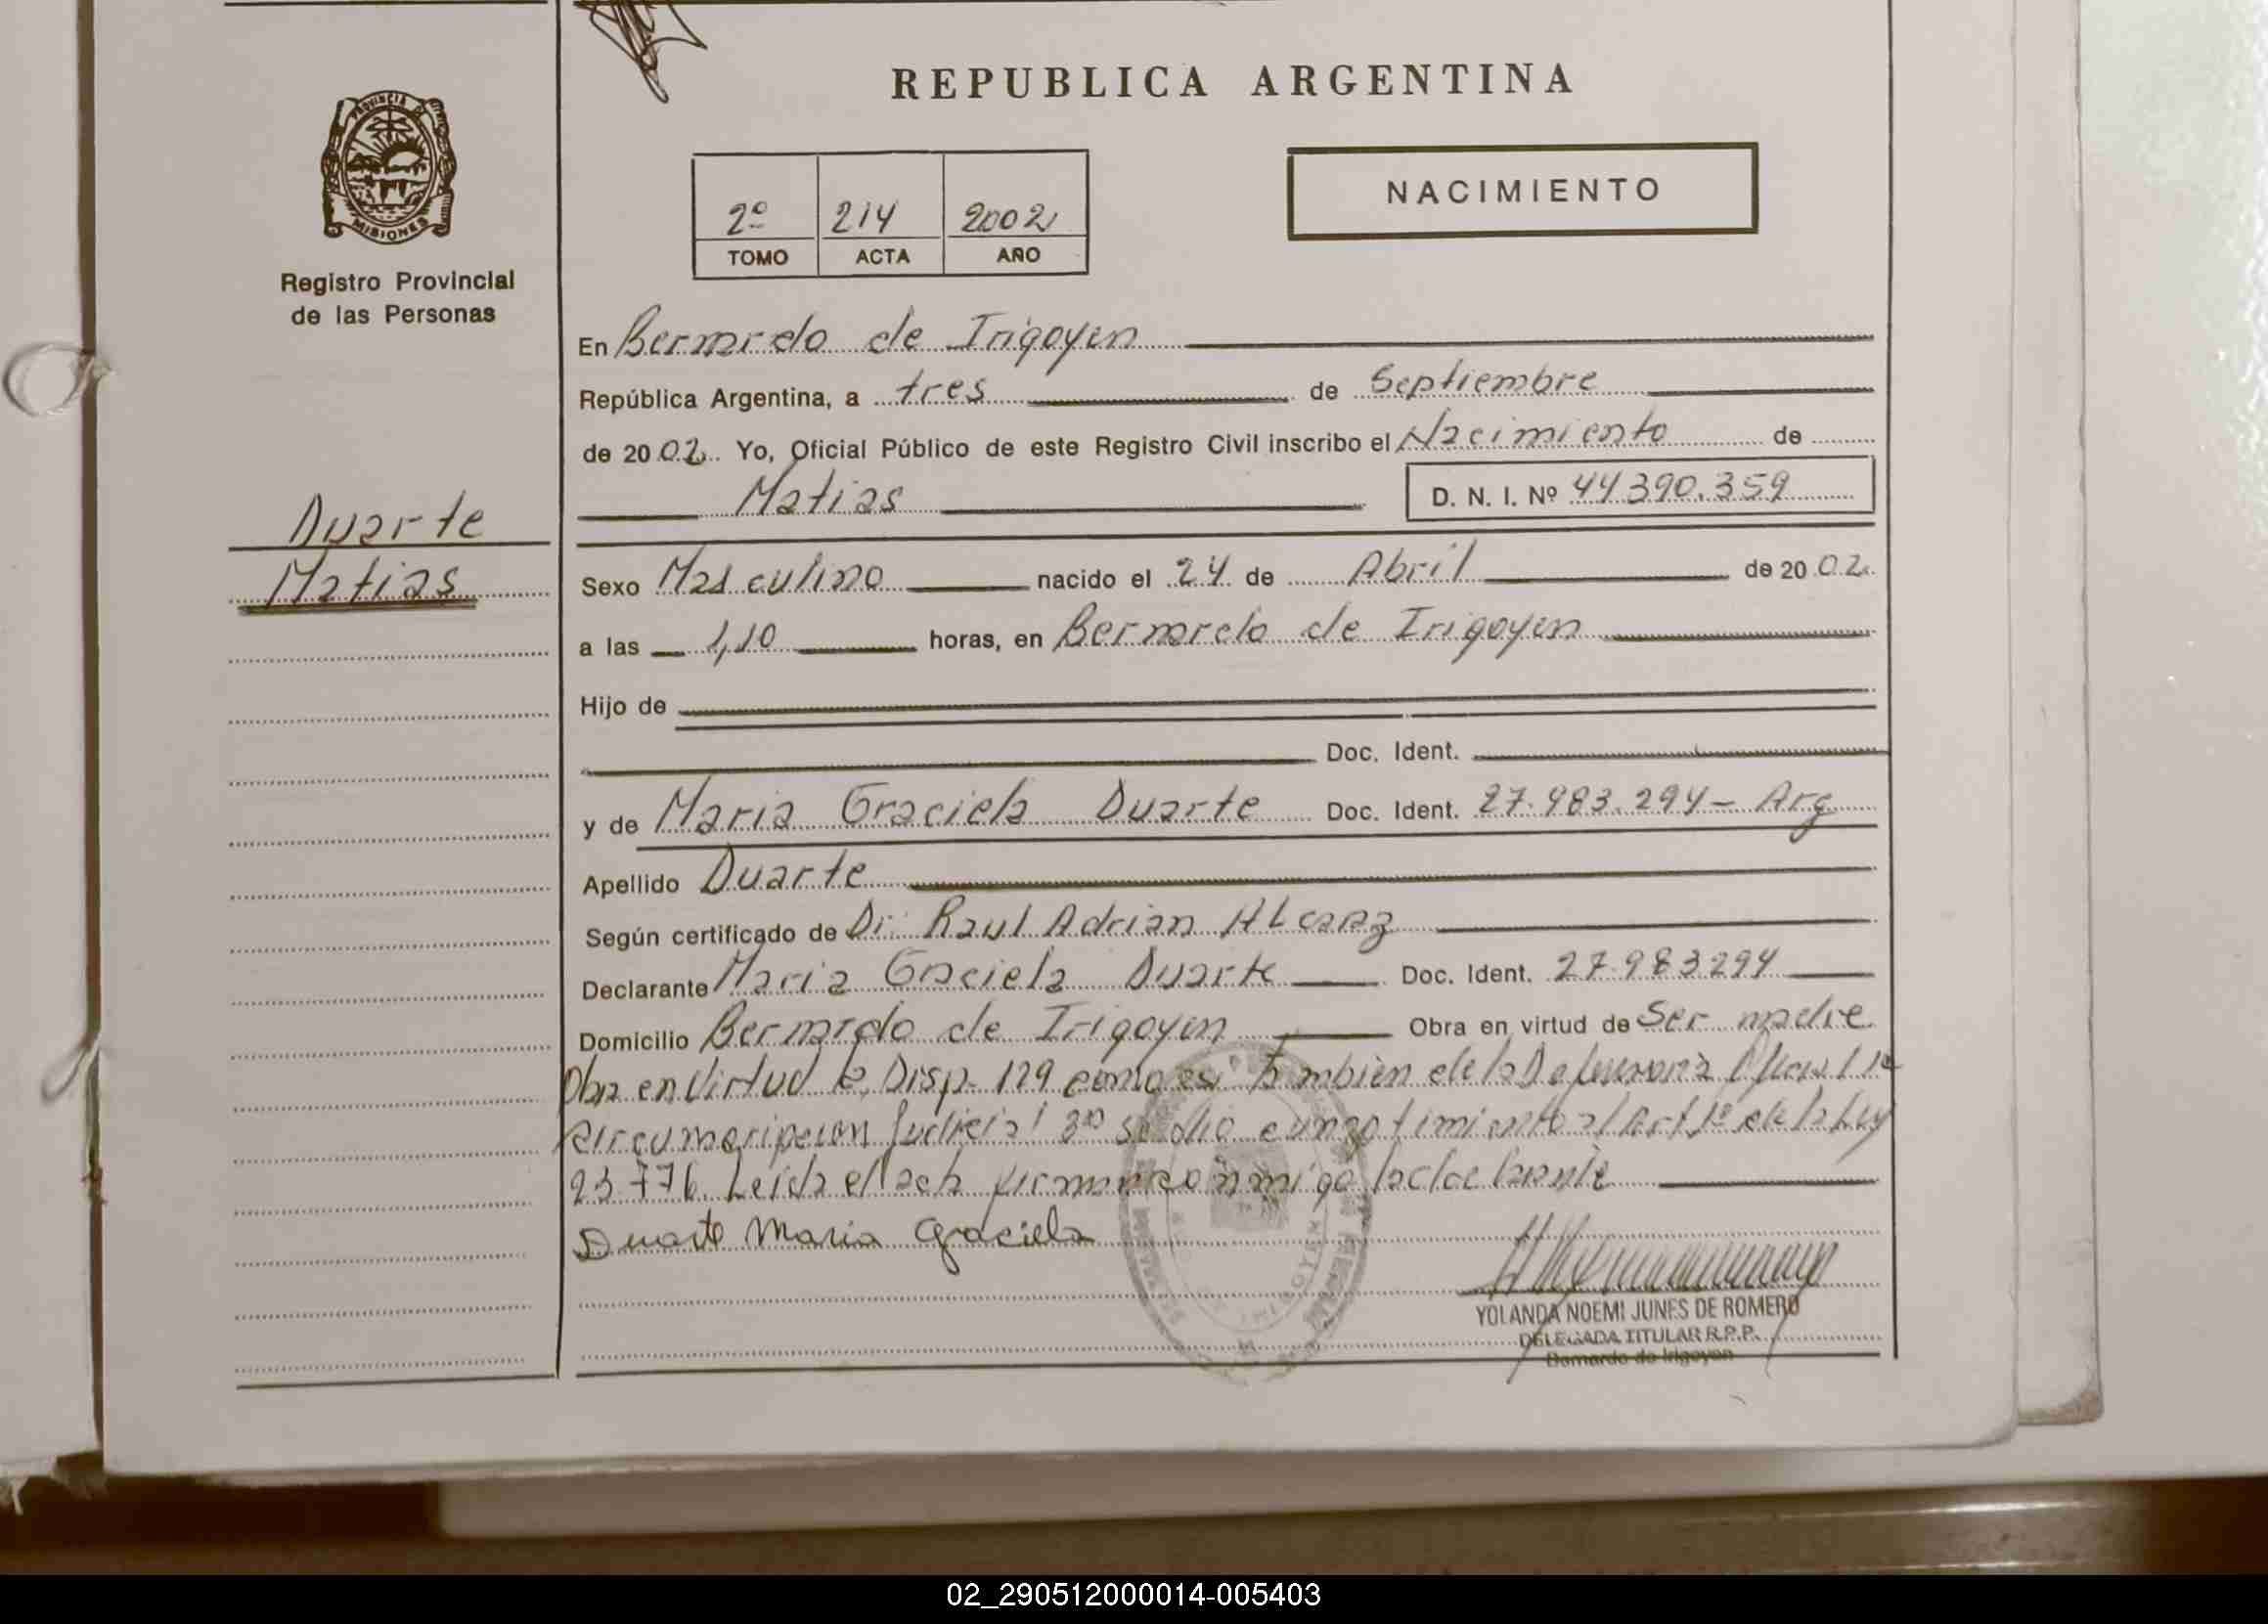 REPUBLICA ARGENTINA
PROVINCIA DE
MISIONES
Registro Provincial
de las Personas
2º 214 2002
TOMO ACTA AÑO
NACIMIENTO
En Bernardo de Irigoyen
República Argentina, a tres de Septiembre
de 2002 Yo, Oficial Público de este Registro Civil inscribo el Nacimiento de
Matias D. N. I. Nº 44390.359
Duarte
Matias
Sexo Masculino nacido el 24 de Abril de 2002
a las 1,10 horas, en Bernardo de Irigoyen
Hijo de
Doc. Ident.
y de Maria Graciela Duarte Doc. Ident. 27.983.294- Arg
Apellido Duarte
Según certificado de Dr. Raul Adrian ALcaraz
Declarante Maria Graciela Duarte Doc. Ident. 27.983294
Domicilio Bernardo de Irigoyen Obra en virtud de Ser madre
Obra en Virtud la Disp. 129 como asi Tambien de la Defensoria Oficial
circunscripcion Judicial 3ra se dio cumplimiento al Art 1º de la Ley
23.776. Leida el acta firma conmigo la declarante
Duarte Maria Graciela
YOLANDA NOEMI JUNES DE ROMERO
DELEGADA TITULAR R.P.P.
Bernardo de Irigoyen
02_290512000014-005403